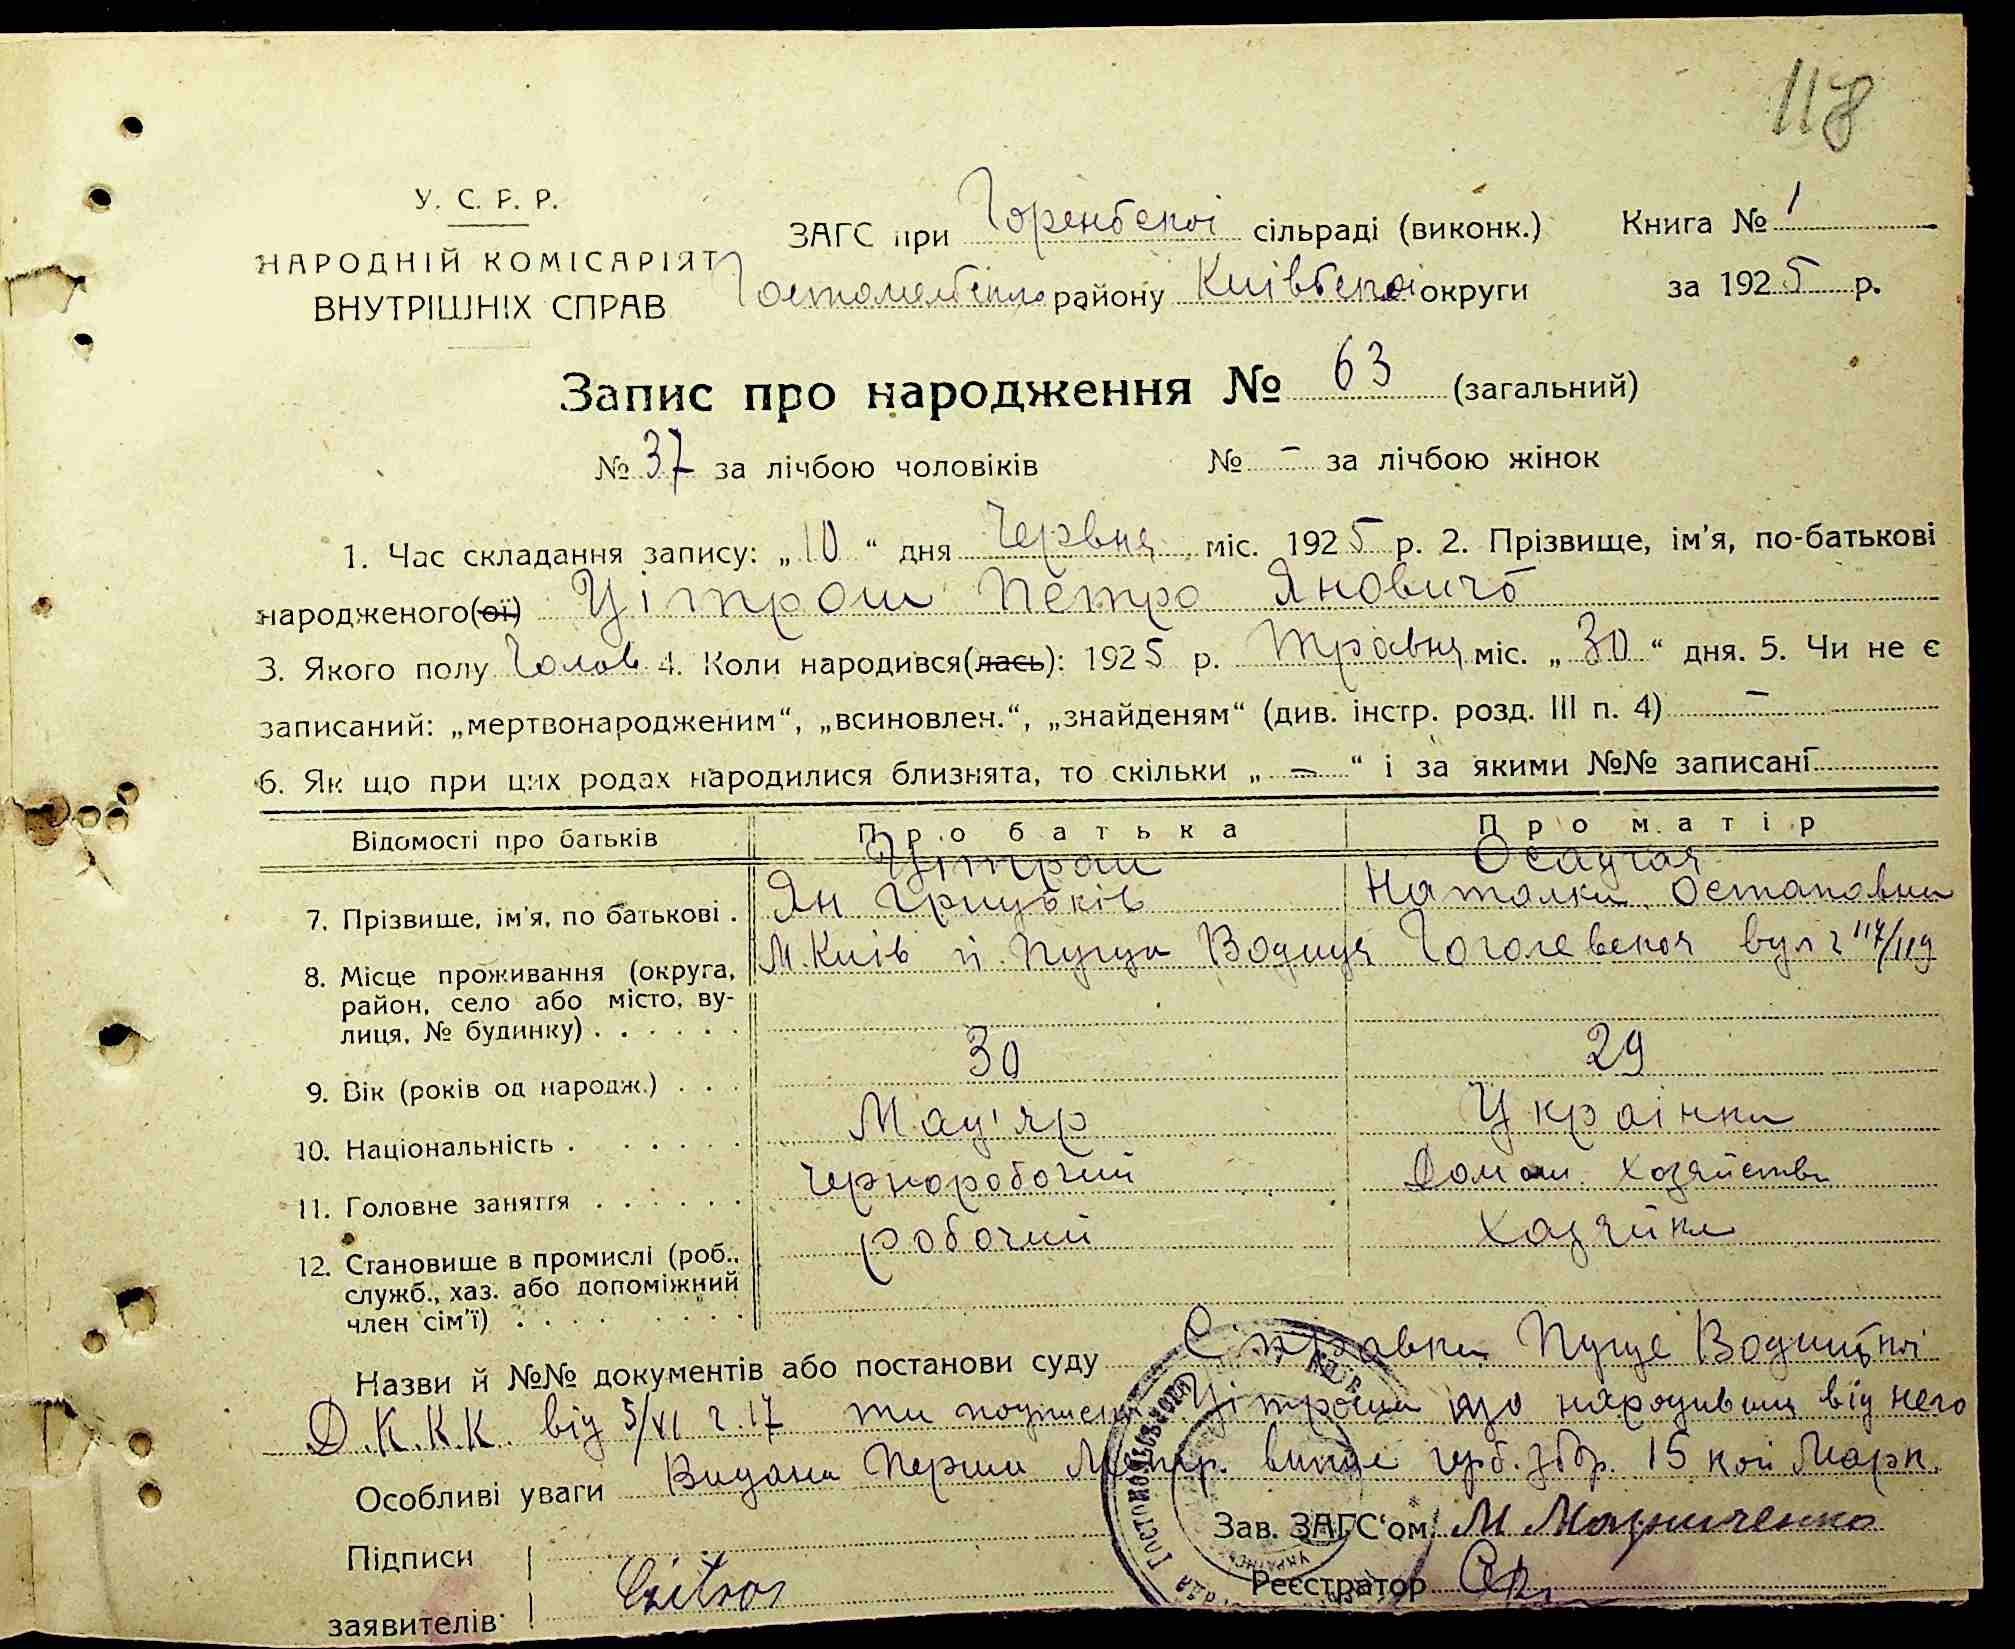 118
У. С. Р. Р.
НАРОДНІЙ КОМІСАРІЯТ
ВНУТРІШНІХ СПРАВ
ЗАГС при Горенської сільраді (виконк.) Книга № 1
району Київської округи за 1925 р.
Запис про народження № 63 (загальний)
№ 37 за лічбою чоловіків № – за лічбою жінок
1. Час складання запису: „10“ дня Червня міс. 1925 р. 2. Прізвище, ім'я, по-батькові
народженого(ої) Цітрош Петро Янович
3. Якого полу Чолов 4. Коли народився(лась): 1925 р. Травня міс. „30“ дня. 5. Чи не є
записаний: „мертвонародженим“, „всиновлен.“, „знайденям“ (див. інстр. розд. III п. 4) –
6. Як що при цих родах народилися близнята, то скільки „–“ і за якими №№ записані
Відомості про батьків Про батька Про матір
7. Прізвище, ім'я, по батькові . Цітрош Ян Грицьків Наталка Остаповна
8. Місце проживання (округа, М. Київ п. Пуща Водиця Гоголевская вул 117/119
район, село або місто, ву-
лиця, № будинку) . . . . . .
9. Вік (років од народж.) . . . 30 29
10. Національність . . . . . . Мад'яр Українка
11. Головне заняття . . . . . . Черноробочий Домаш. хозяйство
12. Становище в промислі (роб., робочий Хазяйка
служб., хаз. або допоміжний
член сім'ї) . . . . . . . . .
Назви й №№ документів або постанови суду Справка Пуще Водицької
Д.К.К.К. від 5/VI що від него
Особливі уваги Видана 15 коп Марк.
Зав. ЗАГС'ом М
Підписи
заявителів Citros
Реєстратор